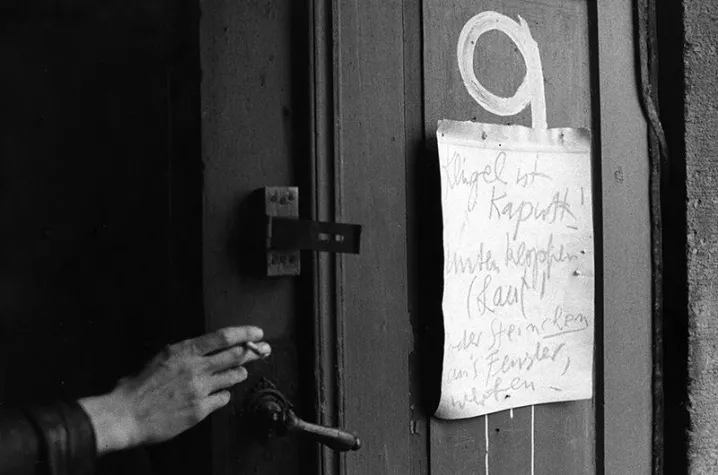 9
Klingel ist
Kaputt!
unten kloppen
(Laut)
oder Steinchen
an's Fenster,
werfen -